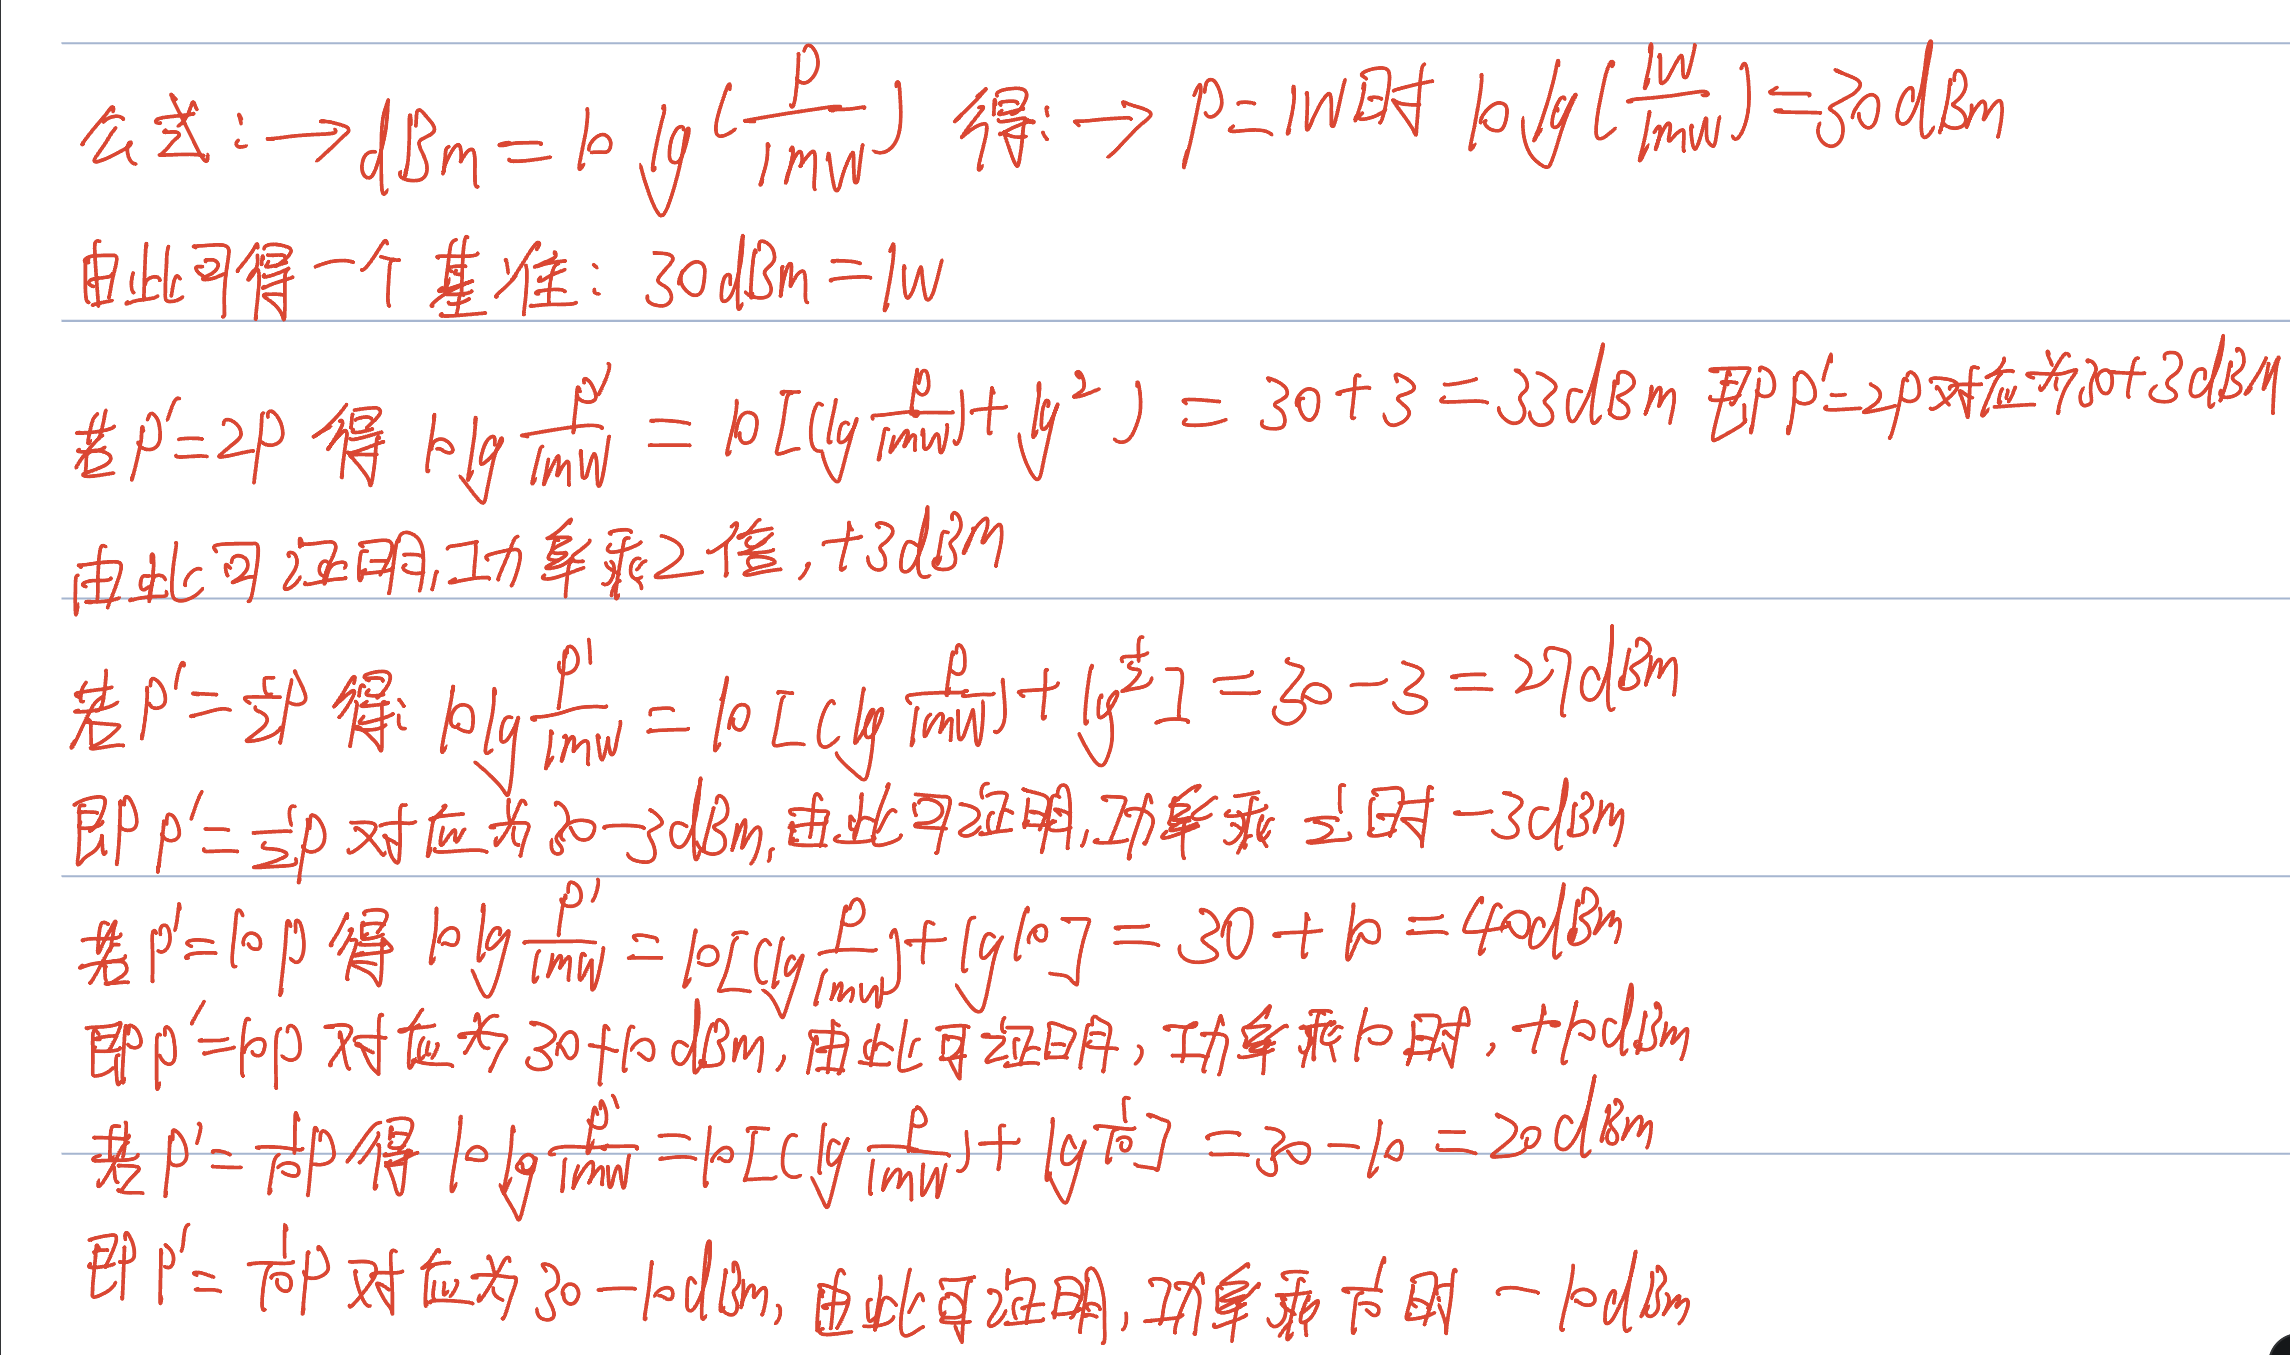 公式:→dBm=10lg(P/1mW) 得:→P=1W时 10lg(1W/1mW)=30dBm
由此可得一个基准:30dBm=1W
若P'=2P 得 10lg P'/1mW = 10[(lg P/1mW)+lg2) = 30+3=33dBm 即P'=2P对应为30+3dBM
由此可证明,功率乘2倍,+3dBM
若P'=1/2P 得:10lg P'/1mW = 10[(lg P/1mW)+lg1/2] = 30-3=27dBm
即P'=1/2P 对应为30-3dBm,由此可证明,功率乘1/2时-3dBm
若P'=10P 得 10lg P'/1mW = 10[(lg P/1mW)+lg10] = 30+10=40dBm
即P'=10P 对应为30+10dBm,由此可证明,功率乘10时,+10dBm
若P'=1/10P 得 10lg P'/1mW = 10[(lg P/1mW)+lg1/10] = 30-10=20dBm
即P'=1/10P 对应为30-10dBm,由此可证明,功率乘1/10时-10dBm